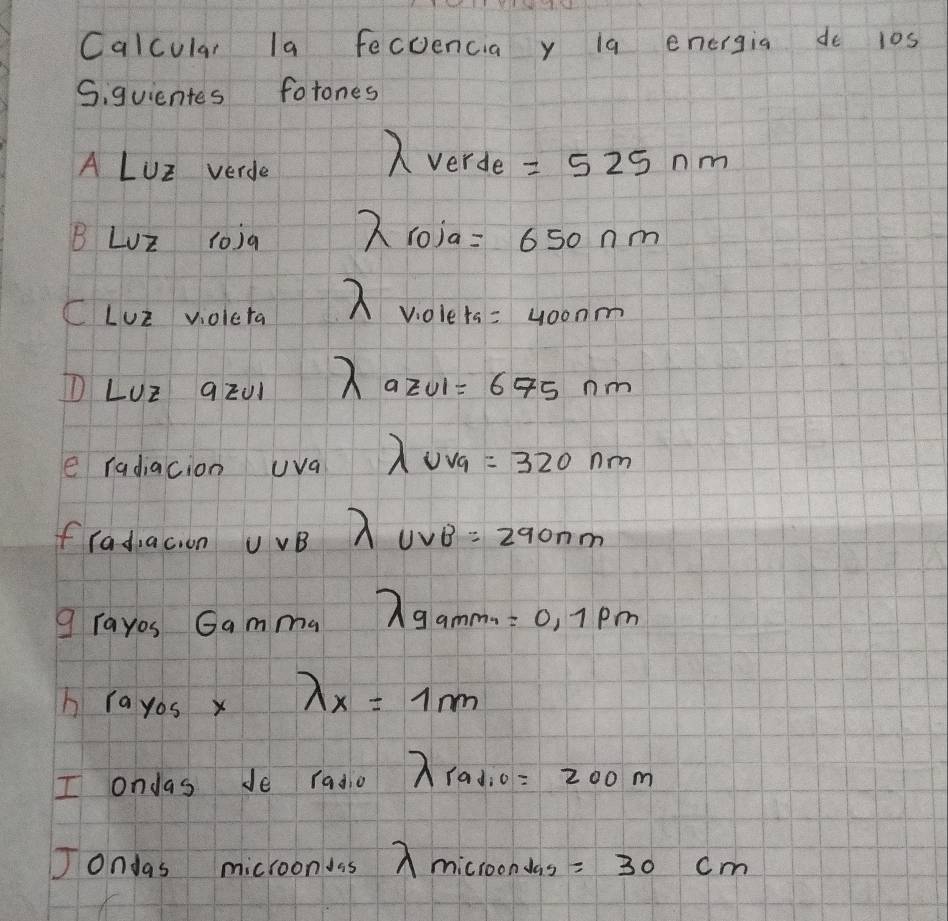 Calcular la fecuencia y la energia de los
Siguientes fotones
A Luz verde λ verde = 525 nm
B Luz roja λ roja = 650 nm
C Luz violeta λ violeta = 400nm
D Luz azul λ azul = 675 nm
e radiacion uva λ uva = 320 nm
f radiacion UVB λ UVB = 290nm
g rayos Gamma λ gamma = 0,1 pm
h rayos x λx = 1 nm
I ondas de radio λ radio = 200 m
J ondas microondas λ microondas = 30 cm